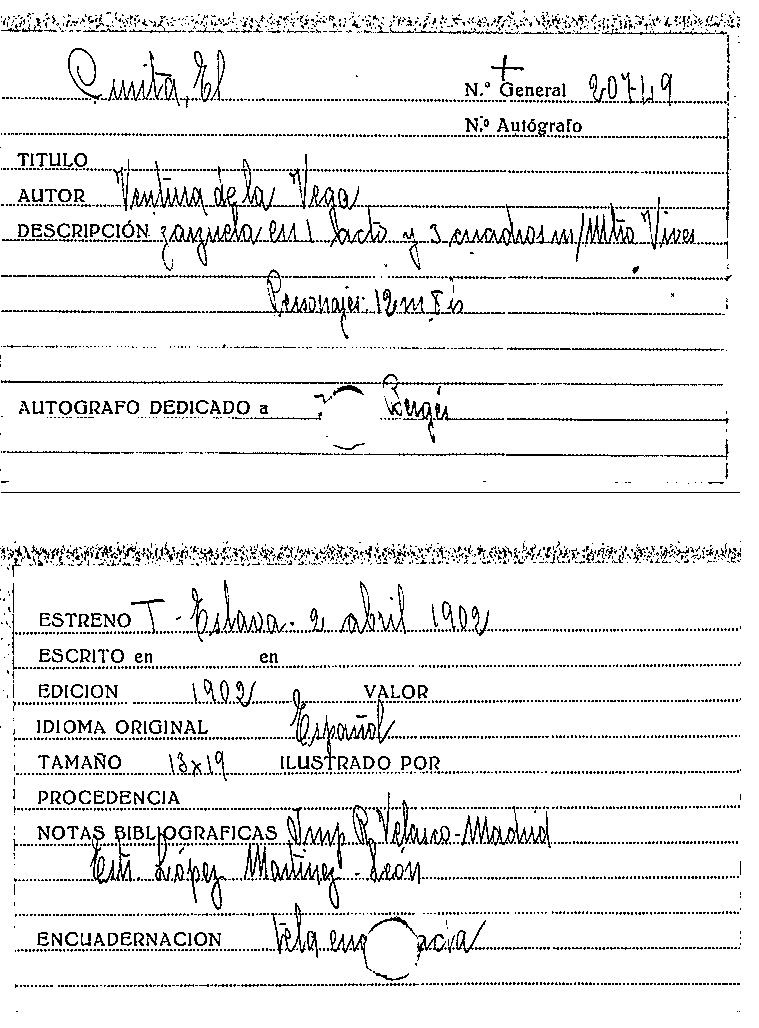 Quita, El
N.º General 20749
N.º Autógrafo
TITULO
AUTOR Ventura de la Vega
DESCRIPCIÓN zarzuela en 1 acto y 3 cuadros m/Mtro Vives
Personajes: 12 m
AUTOGRAFO DEDICADO a Bergés
ESTRENO T - Eslava - 2 abril 1902
ESCRITO en en
EDICION 1902 VALOR
IDIOMA ORIGINAL Español
TAMAÑO 13x19 ILUSTRADO POR
PROCEDENCIA
NOTAS BIBLIOGRAFICAS Imp R. Velasco - Madrid
López Martinez - León
ENCUADERNACION tela